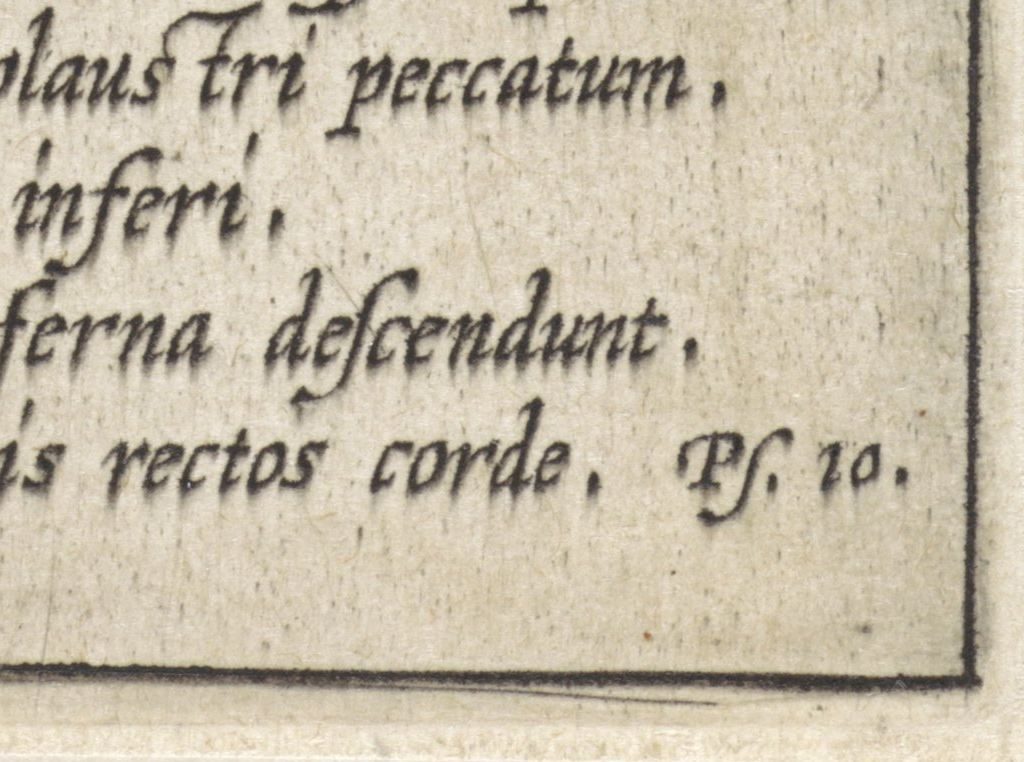 plaustri peccatum.
inferi.
ferna deſcendunt.
is rectos corde. Pſ. 10.